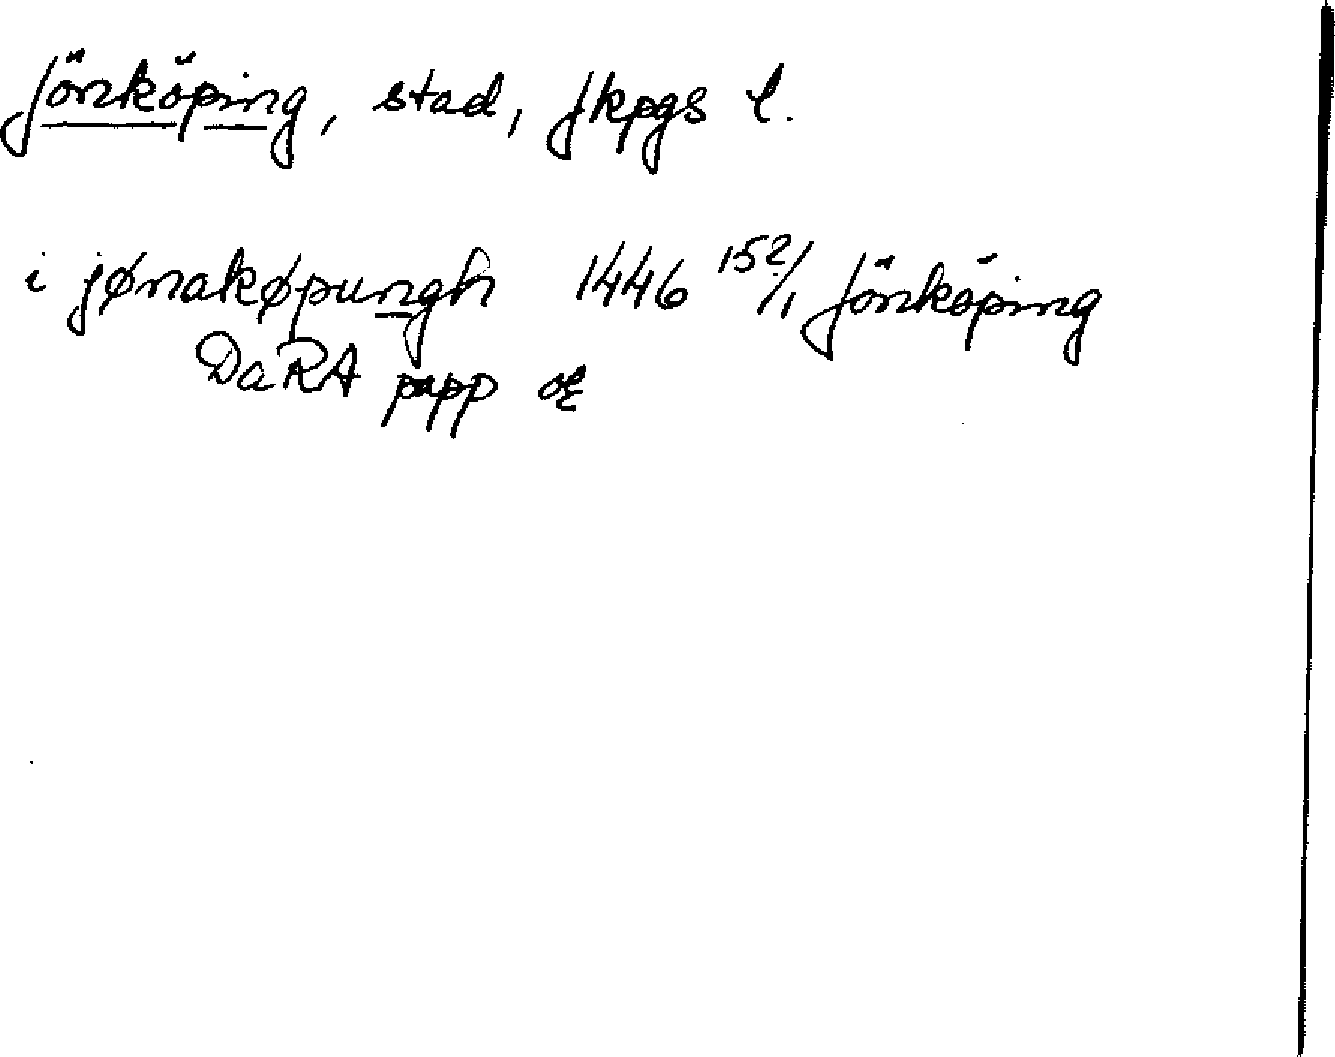 Jönköping, stad, Jkpgs l.
i jønakøpungh 1446 15?/1 Jönköping
DaRA papp or